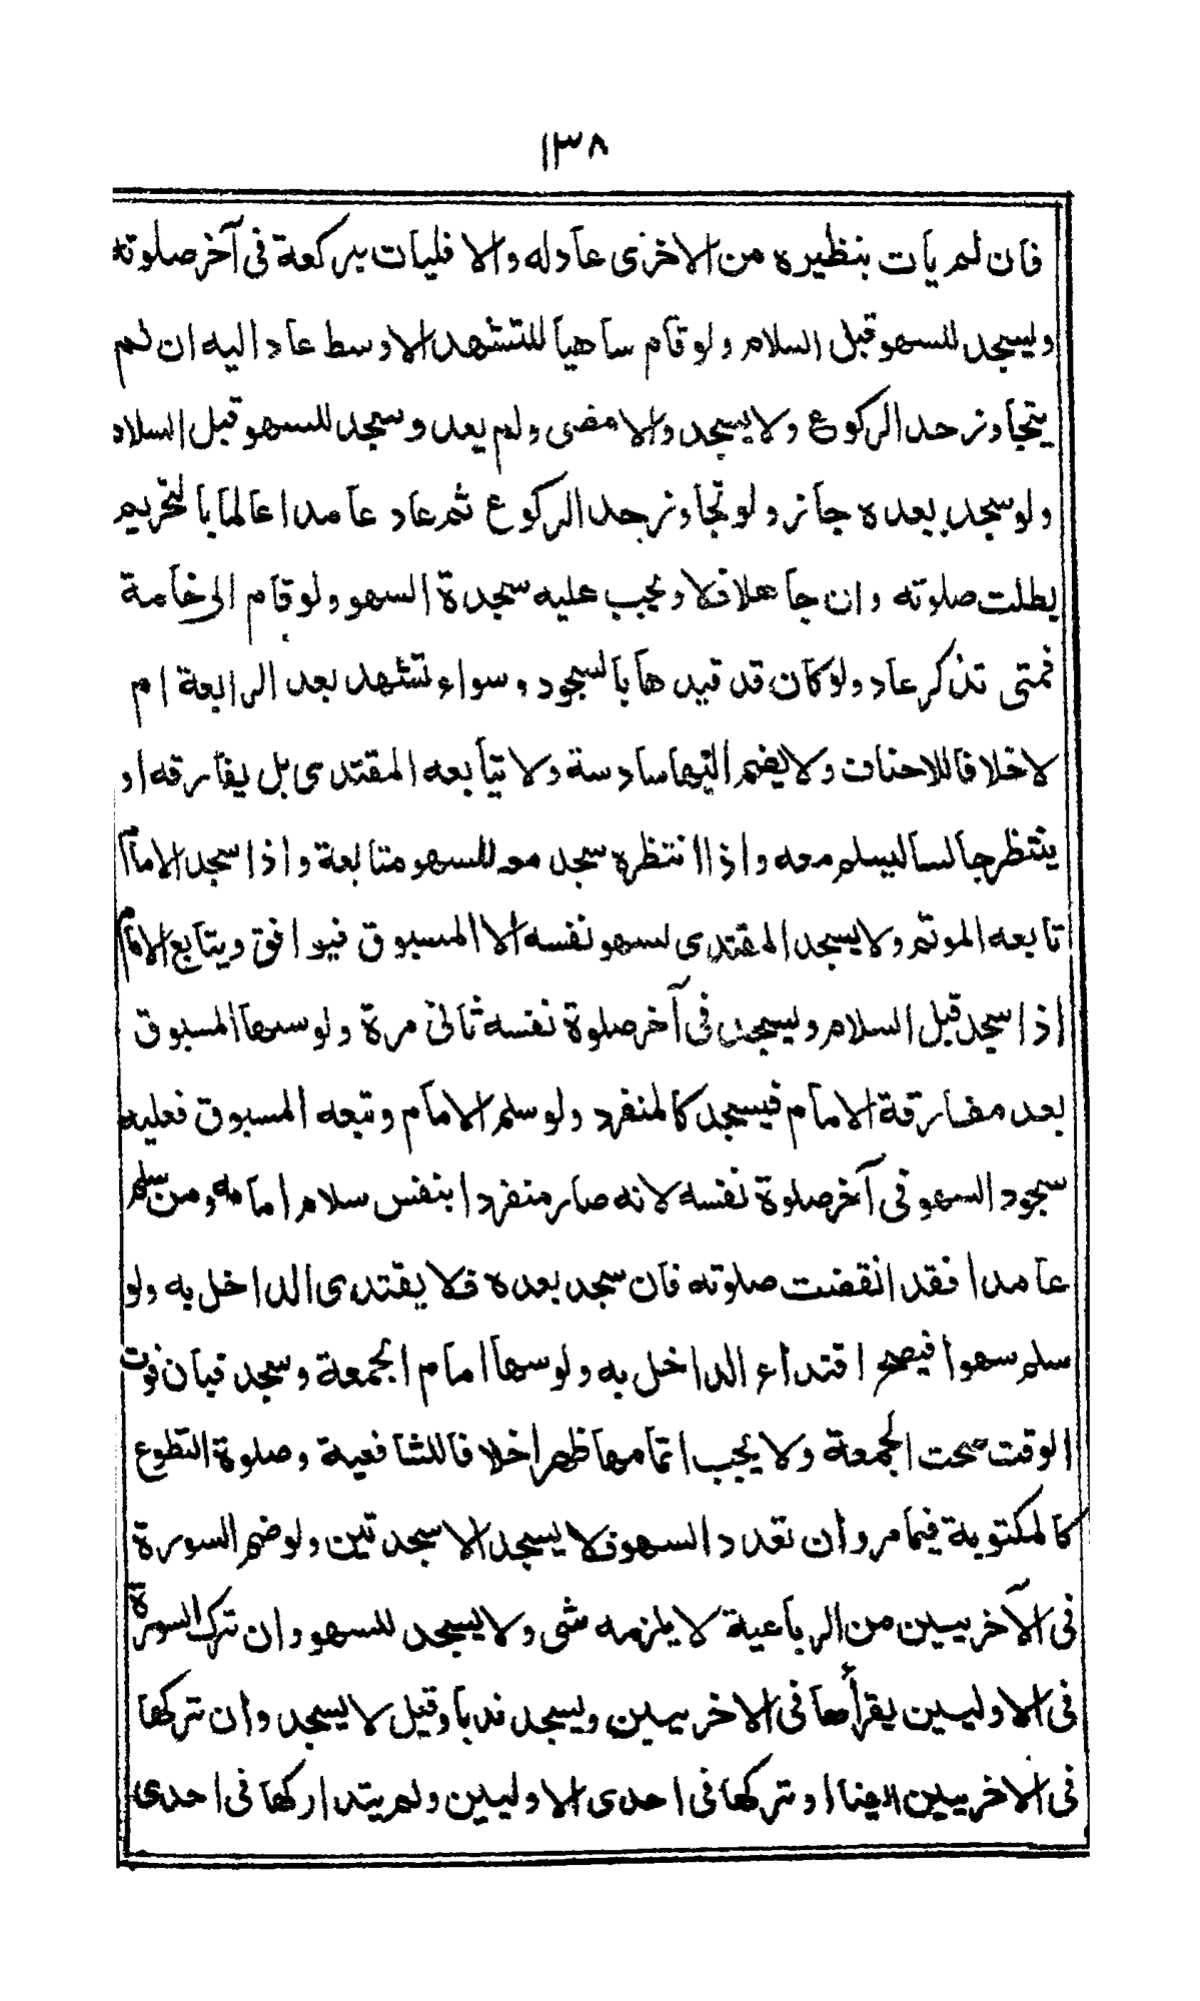 ١٣٨
فان لم يات بنظيره من الاخرى عاد له والا فليات بركعة فى آخر صلوته
وليسجد للسهو قبل السلام ولو قام ساهيا للتشهد الاوسط عاد اليه ان لم
يتجاوز حد الركوع ولا يسجد والا مضى ولم يعد وسجد للسهو قبل السلام
ولو سجد بعده جاز ولو تجاوز حد الركوع ثم عاد عامدا عالما بالتحريم
بطلت صلوته وان جاهلا فلا ويجب عليه سجدة السهو ولو قام الى خامسة
فمتى تذكر عاد ولو كان قد قيدها بالسجود وسواء تشهد بعد الرابعة ام
لا خلافا للاحناف ولا يضم اليها سادسة ولا يتابعه المقتدى بل يفارقه او
ينتظر جالسا ليسلم معه واذا انتظره سجد معه للسهو متابعة واذا سجد الامام
تابعه الموتم ولا يسجد المقتدى لسهو نفسه الا المسبوق فيوافق ويتابع الامام
اذا سجد قبل السلام وليسجد فى آخر صلوة نفسه ثانى مرة ولو سها المسبوق
بعد مفارقة الامام فيسجد كالمنفرد ولو سلم الامام وتبعه المسبوق فعليه
سجود السهو فى آخر صلوة نفسه لانه صار منفردا بنفس سلام امامه ومن سلم
عامدا فقد انقضت صلوته فان سجد بعده فلا يقتدى الداخل به ولو
سلم سهوا فيصح اقتداء الداخل به ولو سها امام الجمعة وسجد فبان فوت
الوقت صحت الجمعة ولا يجب اتمامها ظهرا خلافا للشافعية وصلوة التطوع
كالمكتوبة فيما مر وان تعدد السهو فلا يسجد الا سجدتين ولو ضم السورة
فى الآخريين من الرباعية لا يلزمه شى ولا يسجد للسهو وان ترك السورة
فى الاوليين يقرأها فى الاخريين ويسجد ندبا وقيل لا يسجد وان تركها
فى الاخريين ايضا او تركها فى احدى الاوليين ولم يتداركها فى احدى